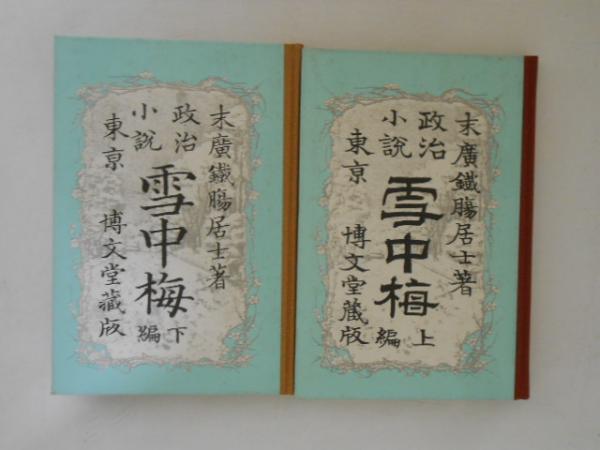 末廣鐵腸居士著
政治
小説
雪中梅
上
編
東亰
博文堂藏版
末廣鐵腸居士著
政治
小説
雪中梅
下
編
東亰
博文堂藏版